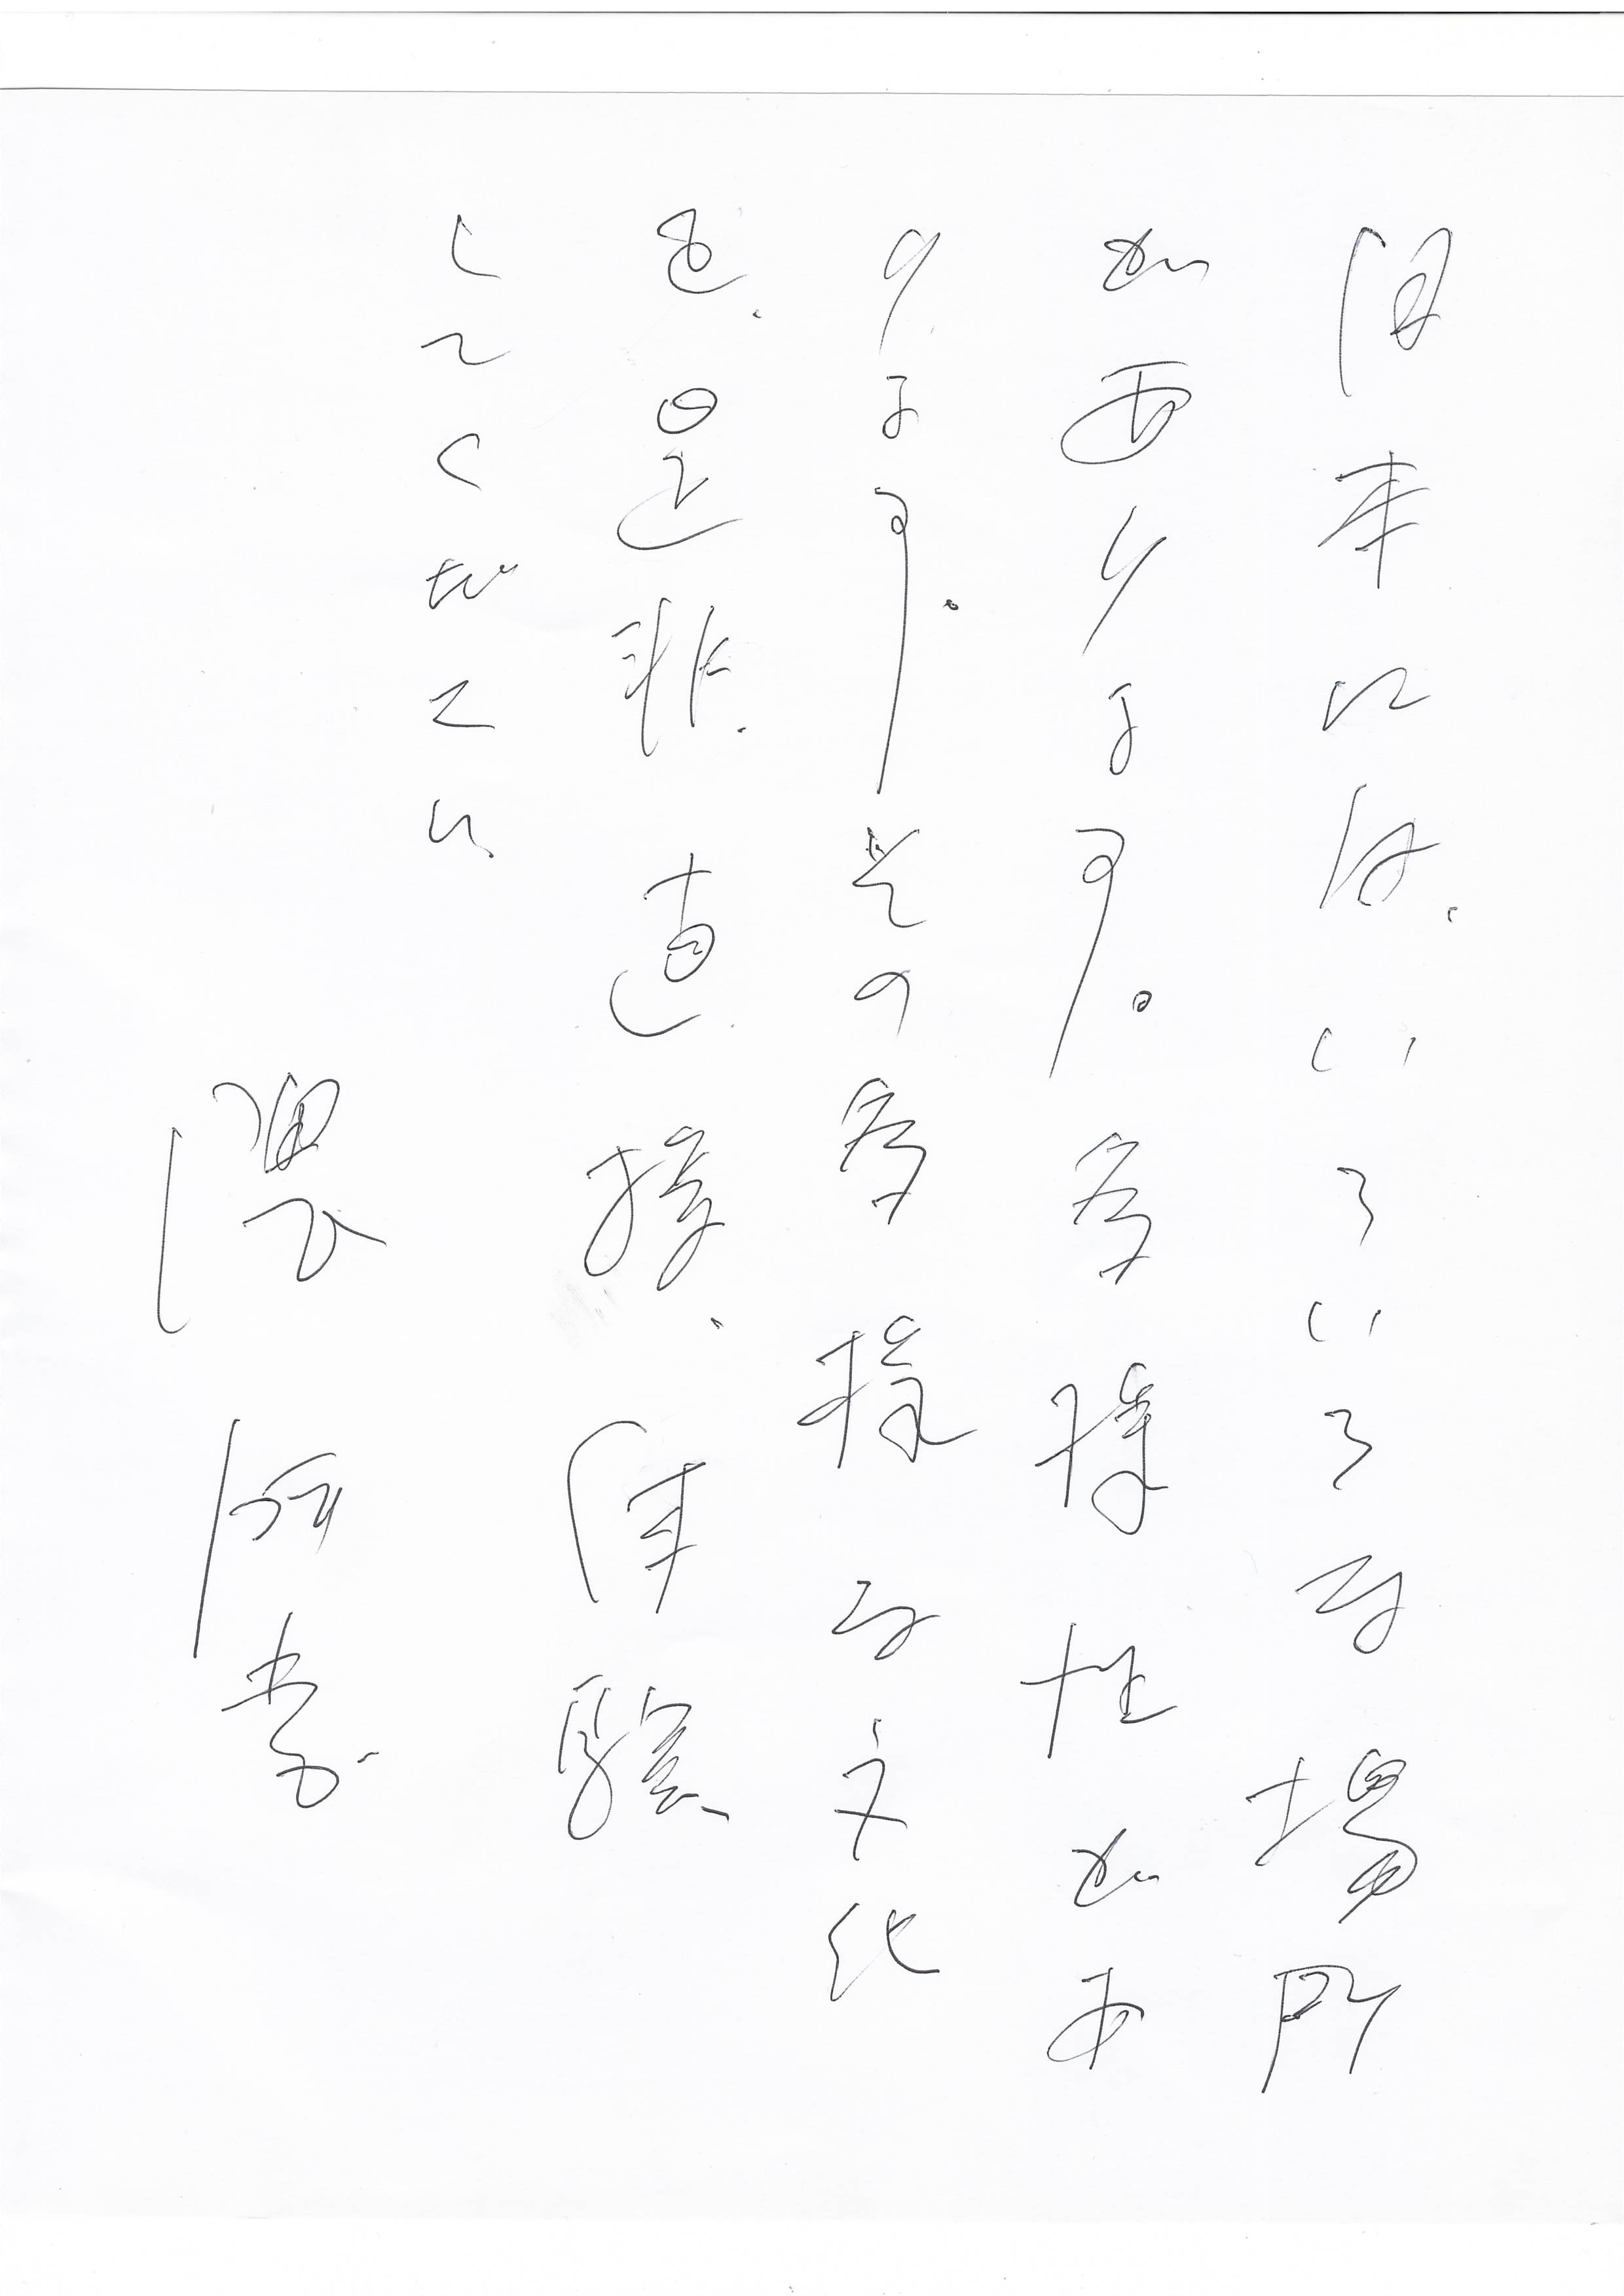 日本には、いろいろな場所
があります。多様性があ
ります。その多様な文化
を、是非、直接、体験
してください
隈研吾